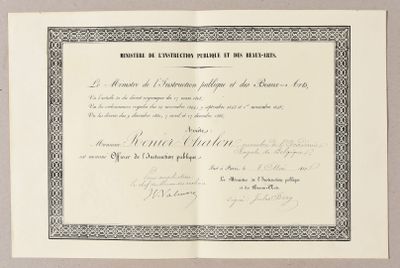 MINISTÈRE DE L'INSTRUCTION PUBLIQUE ET DES BEAUX-ARTS.
Le Ministre de l'Instruction publique et des Beaux-Arts,
Vu l'article 32 du décret organique du 17 mars 1808,
Vu les ordonnances royales des 14 novembre 1844, 9 septembre 1845 et 1er novembre 1846,
Vu les décrets des 9 décembre 1850, 7 avril et 27 décembre 1866,
Arrête:
Monsieur Renier Chalon, membre de l'Académie
Royale de Belgique,
est nommé Officier de l'Instruction publique.
Fait à Paris, le Mai
Pour ampliation:
Le Ministre de l'Instruction publique
et des Beaux-Arts,
Signé: